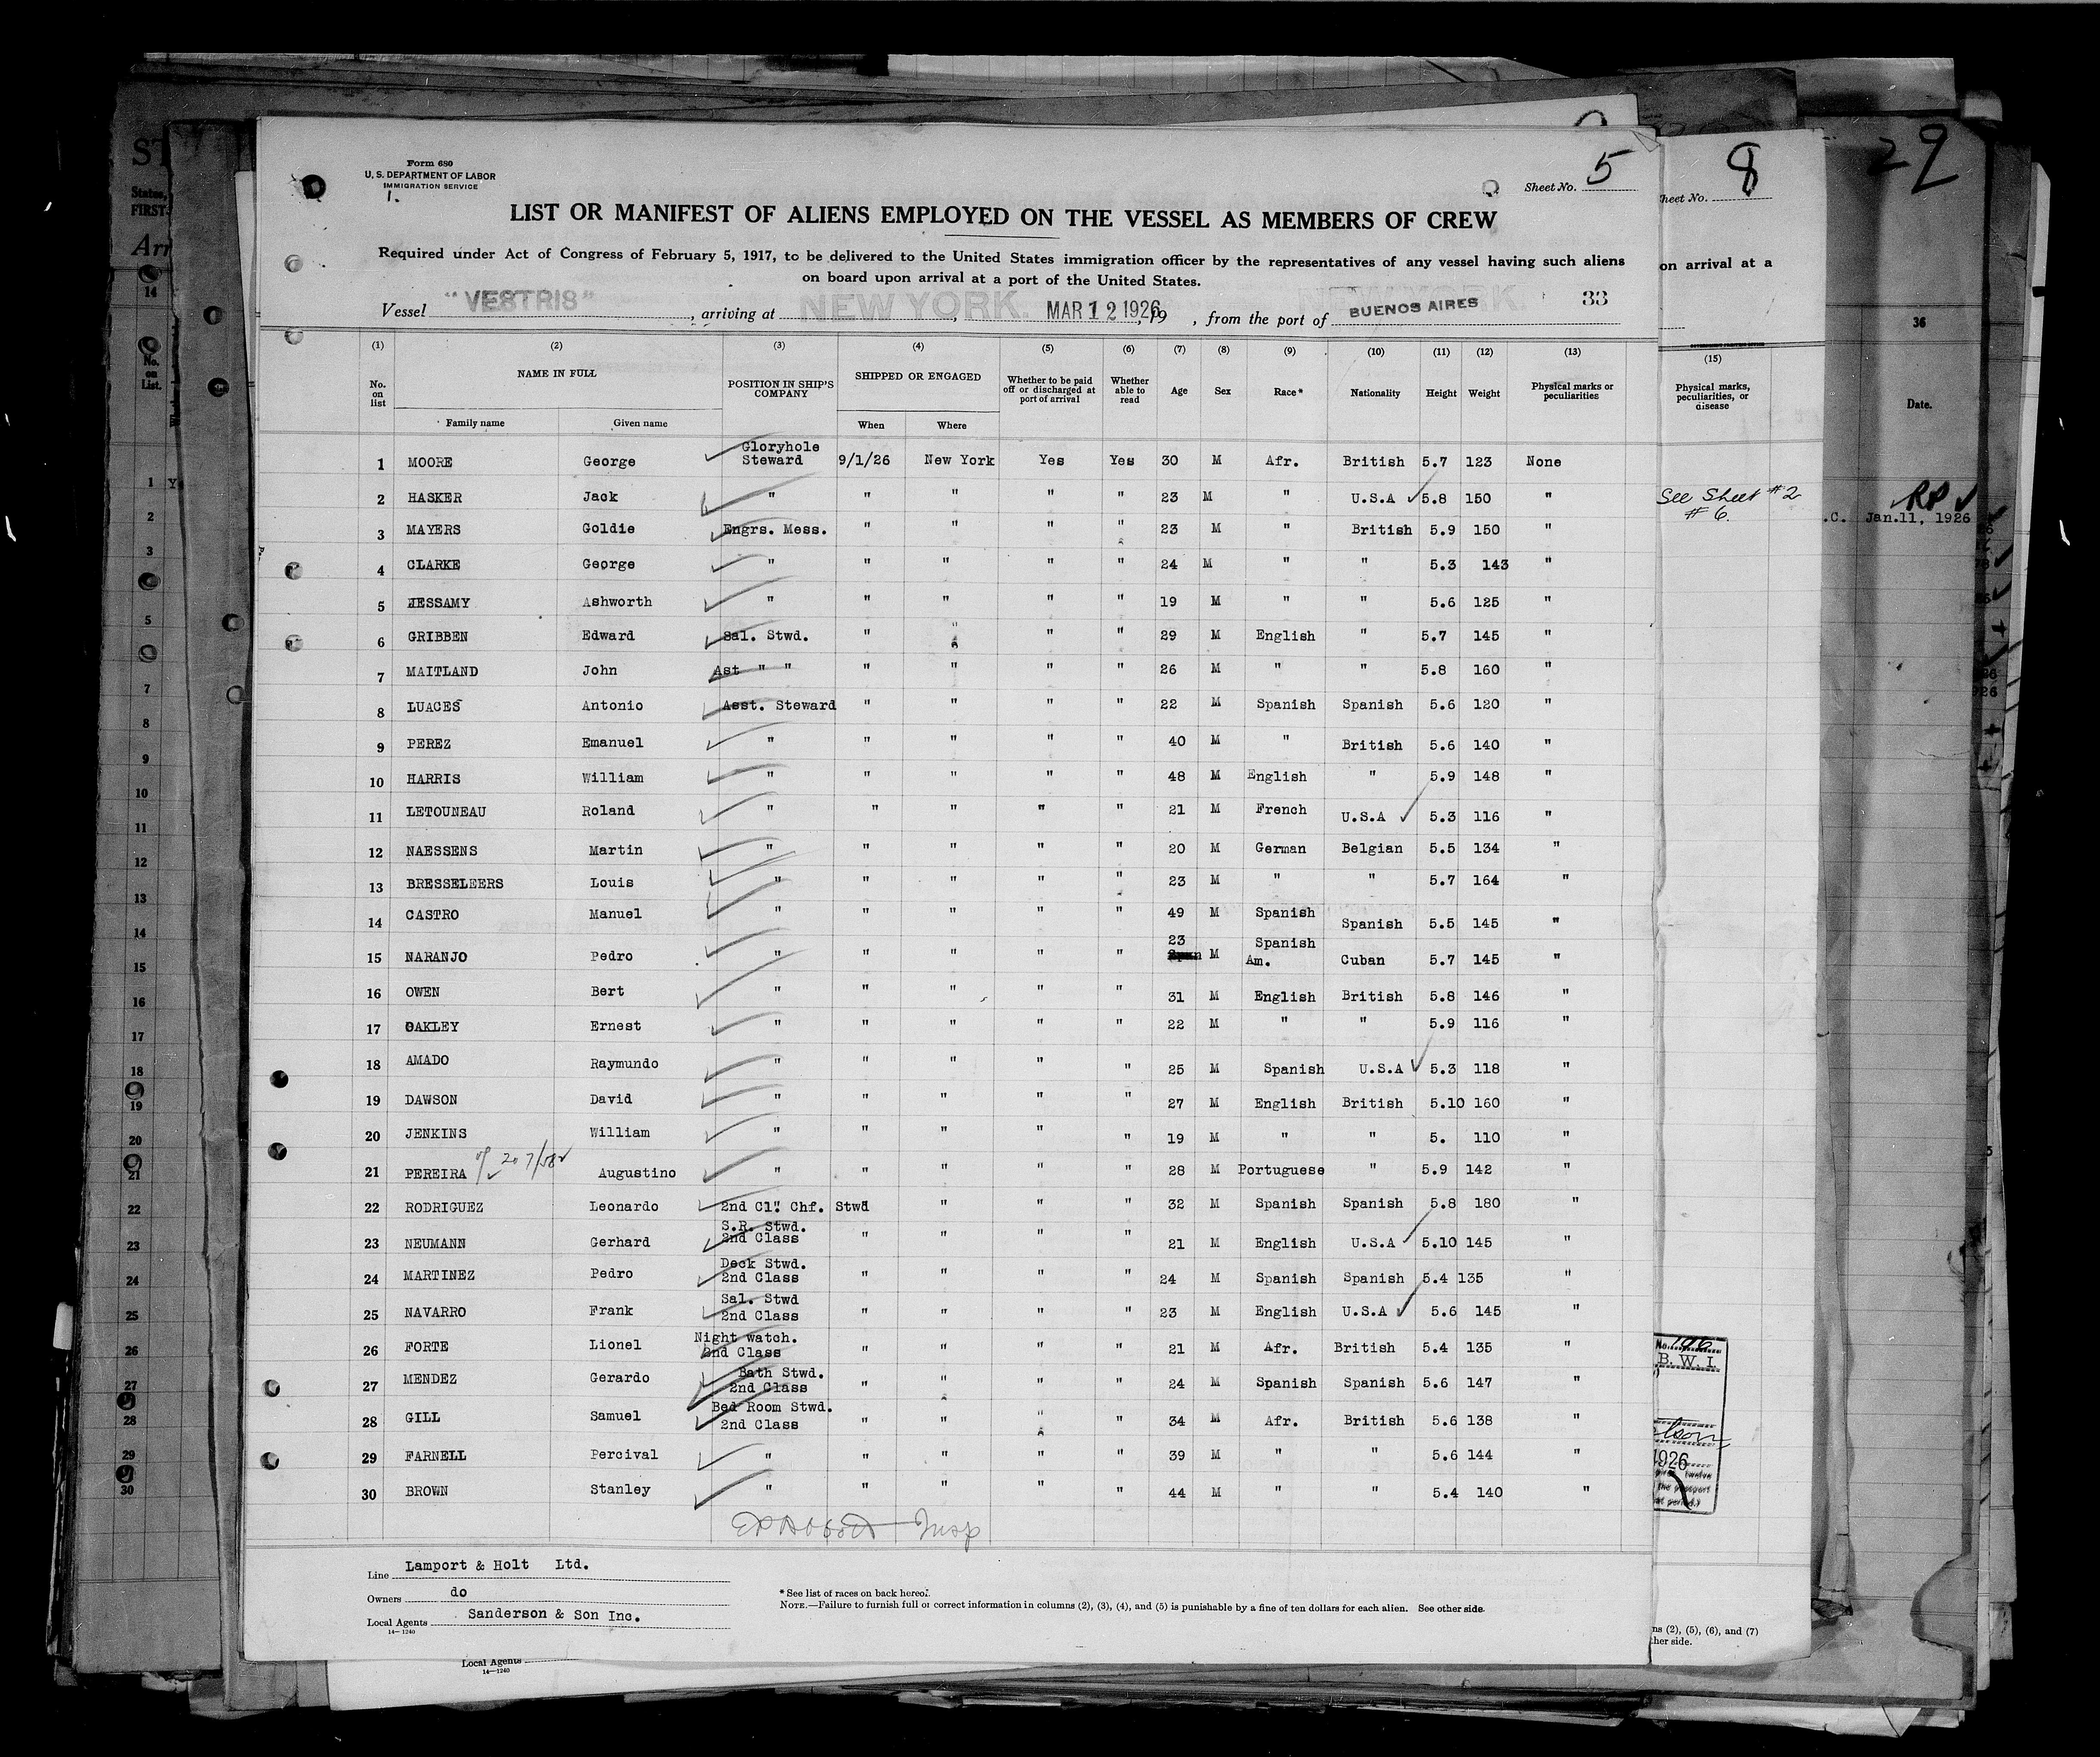 Form 680
U. S. DEPARTMENT OF LABOR
IMMIGRATION SERVICE
1.
Sheet No. 5
LIST OR MANIFEST OF ALIENS EMPLOYED ON THE VESSEL AS MEMBERS OF CREW
Required under Act of Congress of February 5, 1917, to be delivered to the United States immigration officer by the representatives of any vessel having such aliens
on board upon arrival at a port of the United States.
Vessel "VESTRIS", arriving at NEW YORK. , MAR 12 1926, 19 , from the port of BUENOS AIRES 33
(1) (2) (3) (4) (5) (6) (7) (8) (9) (10) (11) (12) (13)
No. on list NAME IN FULL POSITION IN SHIP'S COMPANY SHIPPED OR ENGAGED Whether to be paid off or discharged at port of arrival Whether able to read Age Sex Race* Nationality Height Weight Physical marks or peculiarities
Family name Given name When Where
1 MOORE George Gloryhole Steward 9/1/26 New York Yes Yes 30 M Afr. British 5.7 123 None
2 HASKER Jack " " " " " 23 M " U.S.A 5.8 150 "
3 MAYERS Goldie Engrs. Mess. " " " " 23 M " British 5.9 150 "
4 CLARKE George " " " " " 24 M " " 5.3 143 "
5 HESSAMY Ashworth " " " " " 19 M " " 5.6 125 "
6 GRIBBEN Edward Sal. Stwd. " " " " 29 M English " 5.7 145 "
7 MAITLAND John Ast " " " " " " 26 M " " 5.8 160 "
8 LUACES Antonio Asst. Steward " " " " 22 M Spanish Spanish 5.6 120 "
9 PEREZ Emanuel " " " " " 40 M " British 5.6 140 "
10 HARRIS William " " " " " 48 M English " 5.9 148 "
11 LETOUNEAU Roland " " " " " 21 M French U.S.A 5.3 116 "
12 NAESSENS Martin " " " " " 20 M German Belgian 5.5 134 "
13 BRESSELEERS Louis " " " " " 23 M " " 5.7 164 "
14 CASTRO Manuel " " " " " 49 M Spanish Spanish 5.5 145 "
15 NARANJO Pedro " " " " " 23 M Spanish Am. Cuban 5.7 145 "
16 OWEN Bert " " " " " 31 M English British 5.8 146 "
17 OAKLEY Ernest " " " " " 22 M " " 5.9 116 "
18 AMADO Raymundo " " " " " 25 M Spanish U.S.A 5.3 118 "
19 DAWSON David " " " " " 27 M English British 5.10 160 "
20 JENKINS William " " " " " 19 M " " 5. 110 "
21 PEREIRA Augustino " " " " " 28 M Portuguese " 5.9 142 "
22 RODRIGUEZ Leonardo 2nd Cl. Chf. Stwd " " " " 32 M Spanish Spanish 5.8 180 "
23 NEUMANN Gerhard S.R. Stwd. 2nd Class " " " " 21 M English U.S.A 5.10 145 "
24 MARTINEZ Pedro Deck Stwd. 2nd Class " " " " 24 M Spanish Spanish 5.4 135 "
25 NAVARRO Frank Sal. Stwd 2nd Class " " " " 23 M English U.S.A 5.6 145 "
26 FORTE Lionel Night watch. 2nd Class " " " " 21 M Afr. British 5.4 135 "
27 MENDEZ Gerardo Bath Stwd. 2nd Class " " " " 24 M Spanish Spanish 5.6 147 "
28 GILL Samuel Bed Room Stwd. 2nd Class " " " " 34 M Afr. British 5.6 138 "
29 FARNELL Percival " " " " " 39 M " " 5.6 144 "
30 BROWN Stanley " " " " " 44 M " " 5.4 140 "
Insp
Line Lamport & Holt Ltd.
Owners do
Local Agents Sanderson & Son Inc.
14—1240
* See list of races on back hereof.
NOTE.—Failure to furnish full or correct information in columns (2), (3), (4), and (5) is punishable by a fine of ten dollars for each alien. See other side.
heet No. 8
on arrival at a
(15)
Physical marks, peculiarities, or disease
See Sheet #2
#6.
B. W. I.
1926
ns (2), (5), (6), and (7)
ther side.
29
36
Date.
RP
.C. Jan.11, 1926
States,
FIRST
Arr
No. on List.
Local Agents
14—1240